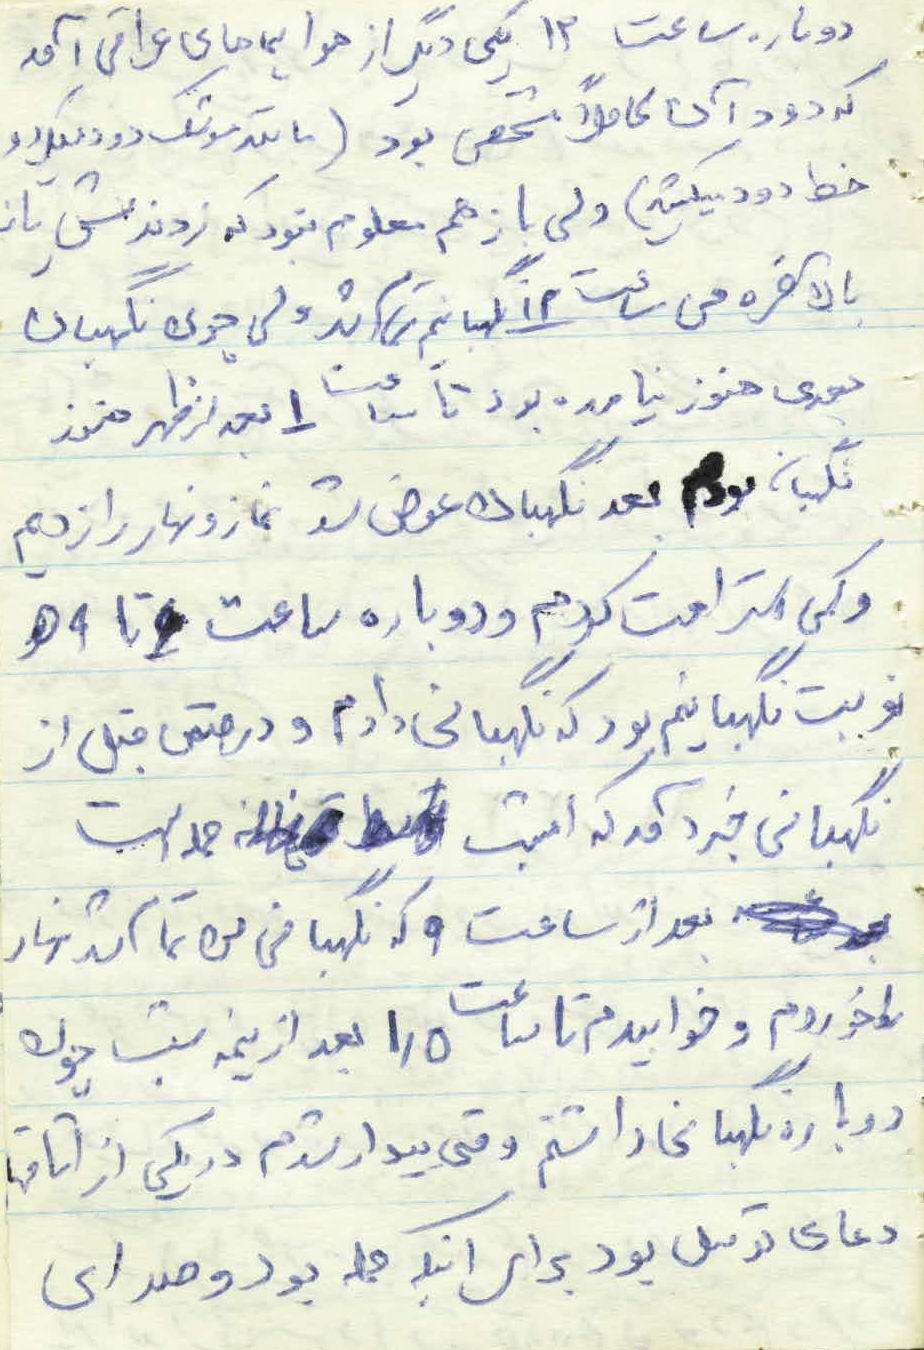 دوباره ساعت ۱۲ یکی دیگر از هواپیماهای عراقی آمد
که دود آن کاملاً مشخص بود (مانند موشک دود میکرد و
خط دود میکشید) ولی باز هم معلوم نبود که زدندش یا نه
بالاخره من ساعت ۱۲ نگهبانیم تمام شد ولی چون نگهبان
بعدی هنوز نیامده بود تا ساعت ۱ بعد از ظهر هنوز
نگهبان بودم بعد نگهبان عوض شد نماز و نهار را زدیم
و کمی استراحت کردم و دوباره ساعت تا ۹
نوبت نگهبانیم بود که نگهبانی دادم و در ضمن قبل از
نگهبانی خبر آمد که امشب حمله است
بعد از ساعت ۹ که نگهبانی من تمام شد نهار
را خوردم و خوابیدم تا ساعت ۱/۵ بعد از نیمه شب چون
دوباره نگهبانی داشتم وقتی بیدار شدم در یکی از اتاقها
دعای توسل بود برای اینکه حمله بود و صدای